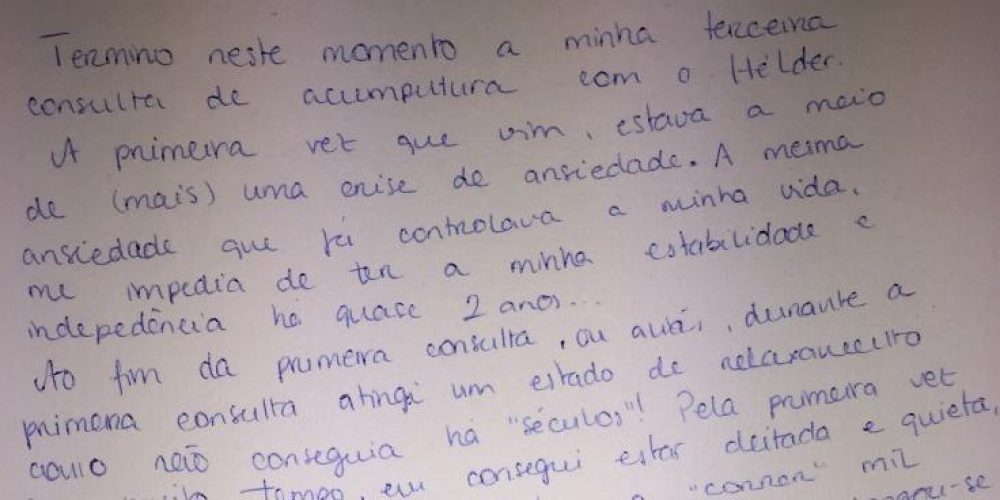 Termino neste momento a minha terceira
consulta de acumputura com o Hélder.
A primeira vez que vim, estava a meio
de (mais) uma crise de ansiedade. A mesma
ansiedade que já controlava a minha vida,
me impedia de ter a minha estabilidade e
indepedência há quase 2 anos...
Ao fim da primeira consulta, ou aliás, durante a
primeira consulta atingi um estado de relaxamento
como não conseguia há "séculos"! Pela primeira vez
tempo, eu consegui estar deitada e quieta,
"correr" mil